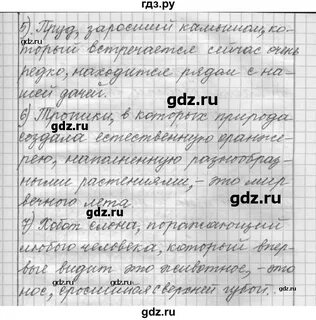 гдз.ру
5) Пруд, заросший камышом, ко-
торый встречается сейчас очень
редко, находится рядом с на-
шей дачей.
gdz.ru
6) Тропики, в которых природа
создала естественную оранже-
gdz.ru
рею, наполненную разнообраз-
ными растениями, – это мир
вечного лета
gdz.ru
7) Хобот слона, поражающий
любого человека, который впер-
вые видит это животное, – это
нос, сросшийся с верхней губой.
gdz.ru